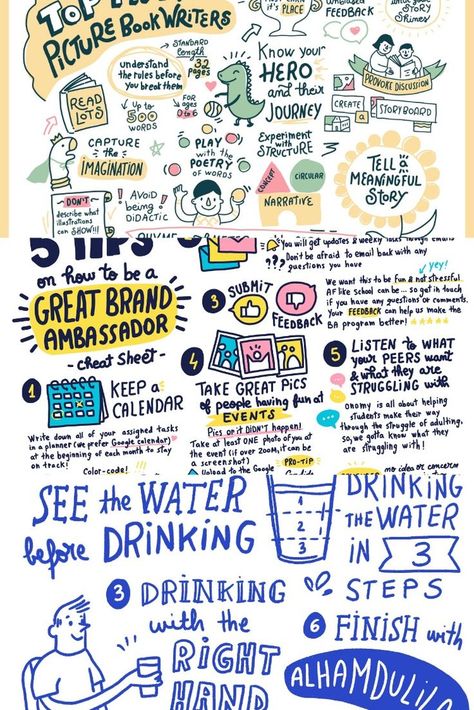 PICTURE BOOK WRITERS
PLACE
FEEDBACK
YOUR
STORY
SHINES
STANDARD
length
32
pages
understand
the rules before
you break them
Know your
HERO
and their
JOURNEY
PROVOKE DISCUSSION
READ
LOTS
Up to
500
WORDS
FOR
ages
0 to 6
CREATE
a
STORYBOARD
CAPTURE
the
IMAGINATION
PLAY
with the
POETRY
OF WORDS
Experiment
with
STRUCTURE
CONCEPT
CIRCULAR
NARRATIVE
TELL a
MEANINGFUL
STORY
DON'T
describe what
illustrations
can SHOW!!!
AVOID
being
DIDACTIC
5 TIPS
on how to be a
GREAT BRAND
AMBASSADOR
- cheat Sheet -
You will get updates & weekly tasks through emails
Don't be afraid to email back with any
questions you have
yey!
3 SUBMIT
FEEDBACK
We want this to be fun & not stressful
AF like School can be... so get in touch
if you have any questions or comments.
Your FEEDBACK can help us make the
BA program better!
1
KEEP a
CALENDAR
Write down all of your assigned tasks
in a planner (we prefer Google calendar)
at the beginning of each month to stay
on track!
Color-code!
4
TAKE GREAT PICS
of people having fun at
EVENTS
Pics or it Didn't happen!
Take at least ONE photo of you at
the event (if over 200M, it can be
a screenshot)
Upload to the Google
PRO-TIP
5 LISTEN TO what
your PEERS want
& what they are
STRUGGLING with
onomy is all about helping
students make their way
through the struggle of adulting,
so, we gotta know what they
are struggling with!
SEE the WATER
before DRINKING
1
2
3
DRINKING
THE WATER
IN 3
STEPS
3 DRINKING
with the
RIGHT
HAND
6 FINISH with
ALHAMDULILA